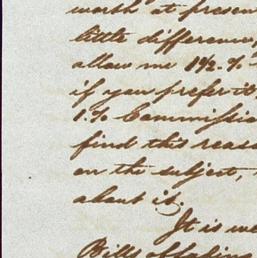 worth at presen
little difference,
allow me 1½.%
if you prefer it,
1.% Commissio
find this reaso
on the subject,
about it.
It is we
Bills obtain